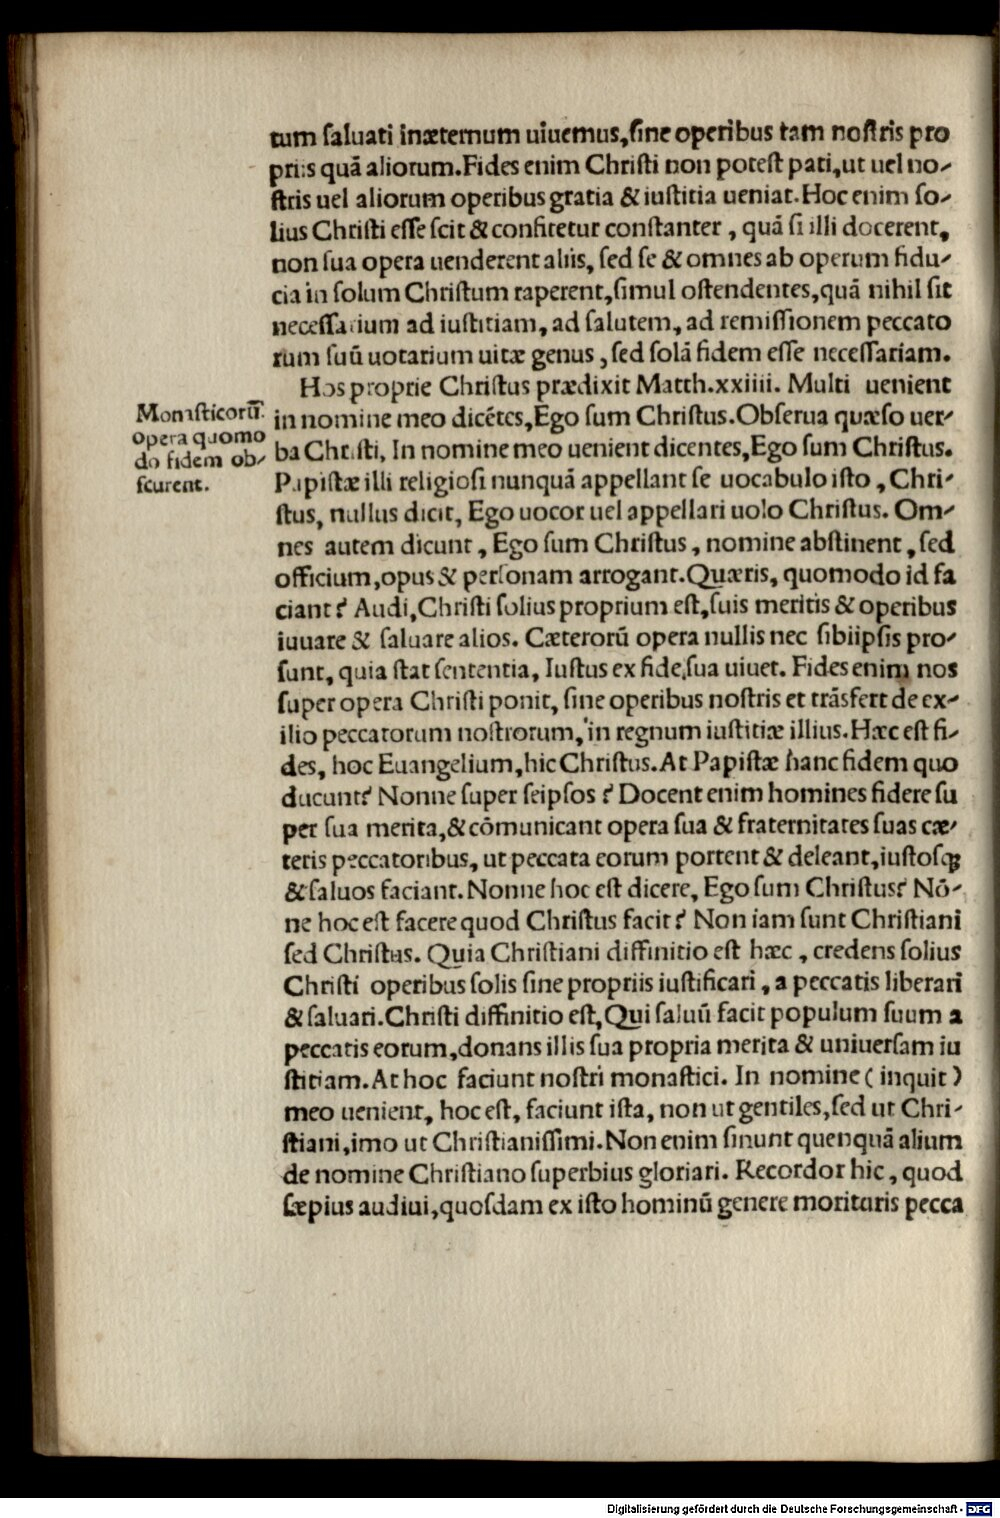 tum saluati inæternum uiuemus,sine operibus tam nostris pro
priis quã aliorum.Fides enim Christi non potest pati,ut uel no-
stris uel aliorum operibus gratia & iustitia ueniat.Hoc enim so-
lius Christi esse scit & confitetur constanter, quã si illi docerent,
non sua opera uenderent aliis, sed se & omnes ab operum fidu-
cia in solum Christum raperent,simul ostendentes,quã nihil sit
necessarium ad iustitiam, ad salutem, ad remissionem peccato
rum suũ uotarium uitæ genus, sed solã fidem esse necessariam.
Hos proprie Christus prædixit Matth.xxiiii. Multi uenient
in nomine meo dicẽtes,Ego sum Christus.Obserua quæso uer-
ba Christi, In nomine meo uenient dicentes,Ego sum Christus.
Papistæ illi religiosi nunquã appellant se uocabulo isto, Chri-
stus, nullus dicit, Ego uocor uel appellari uolo Christus. Om-
nes autem dicunt, Ego sum Christus, nomine abstinent, sed
officium,opus & personam arrogant.Quæris, quomodo id fa
ciant? Audi,Christi solius proprium est,suis meritis & operibus
iuuare & saluare alios. Cæterorũ opera nullis nec sibiipsis pro-
sunt, quia stat sententia, Iustus ex fide,sua uiuet. Fides enim nos
super opera Christi ponit, sine operibus nostris et trãsfert de ex-
ilio peccatorum nostrorum, in regnum iustitiæ illius.Hæc est fi-
des, hoc Euangelium,hic Christus.At Papistæ hanc fidem quo
ducunt? Nonne super seipsos? Docent enim homines fidere su
per sua merita,& cõmunicant opera sua & fraternitates suas cæ-
teris peccatoribus, ut peccata eorum portent & deleant,iustosq;
& saluos faciant.Nonne hoc est dicere, Ego sum Christus? Nõ-
ne hoc est facere quod Christus facit? Non iam sunt Christiani
sed Christus. Quia Christiani diffinitio est hæc, credens solius
Christi operibus solis sine propriis iustificari, a peccatis liberari
& saluari.Christi diffinitio est,Qui saluũ facit populum suum a
peccatis eorum,donans illis sua propria merita & uniuersam iu
stitiam.At hoc faciunt nostri monastici. In nomine (inquit)
meo uenient, hoc est, faciunt ista, non ut gentiles,sed ut Chri-
stiani,imo ut Christianissimi.Non enim sinunt quenquã alium
de nomine Christiano superbius gloriari. Recordor hic, quod
sæpius audiui,quosdam ex isto hominũ genere morituris pecca
Monasticorũ
opera quomo
do fidem ob-
scurent.
Digitalisierung gefördert durch die Deutsche Forschungsgemeinschaft - DFG